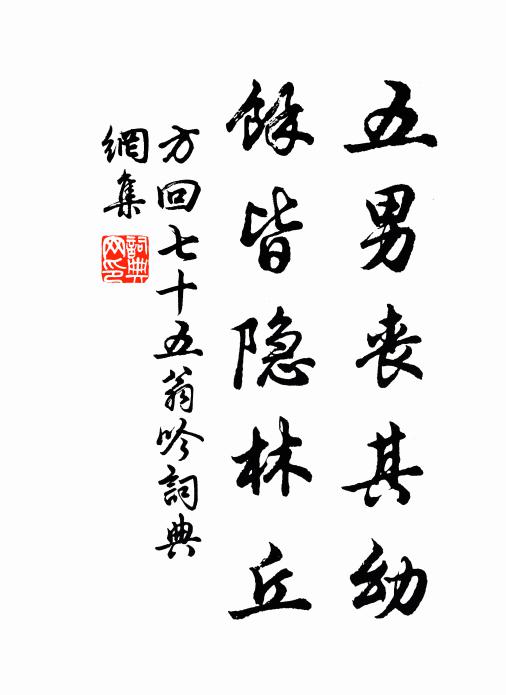 五男丧其幼
餘皆隐林丘
方回七十五翁吟詞典
網集
詞典网印